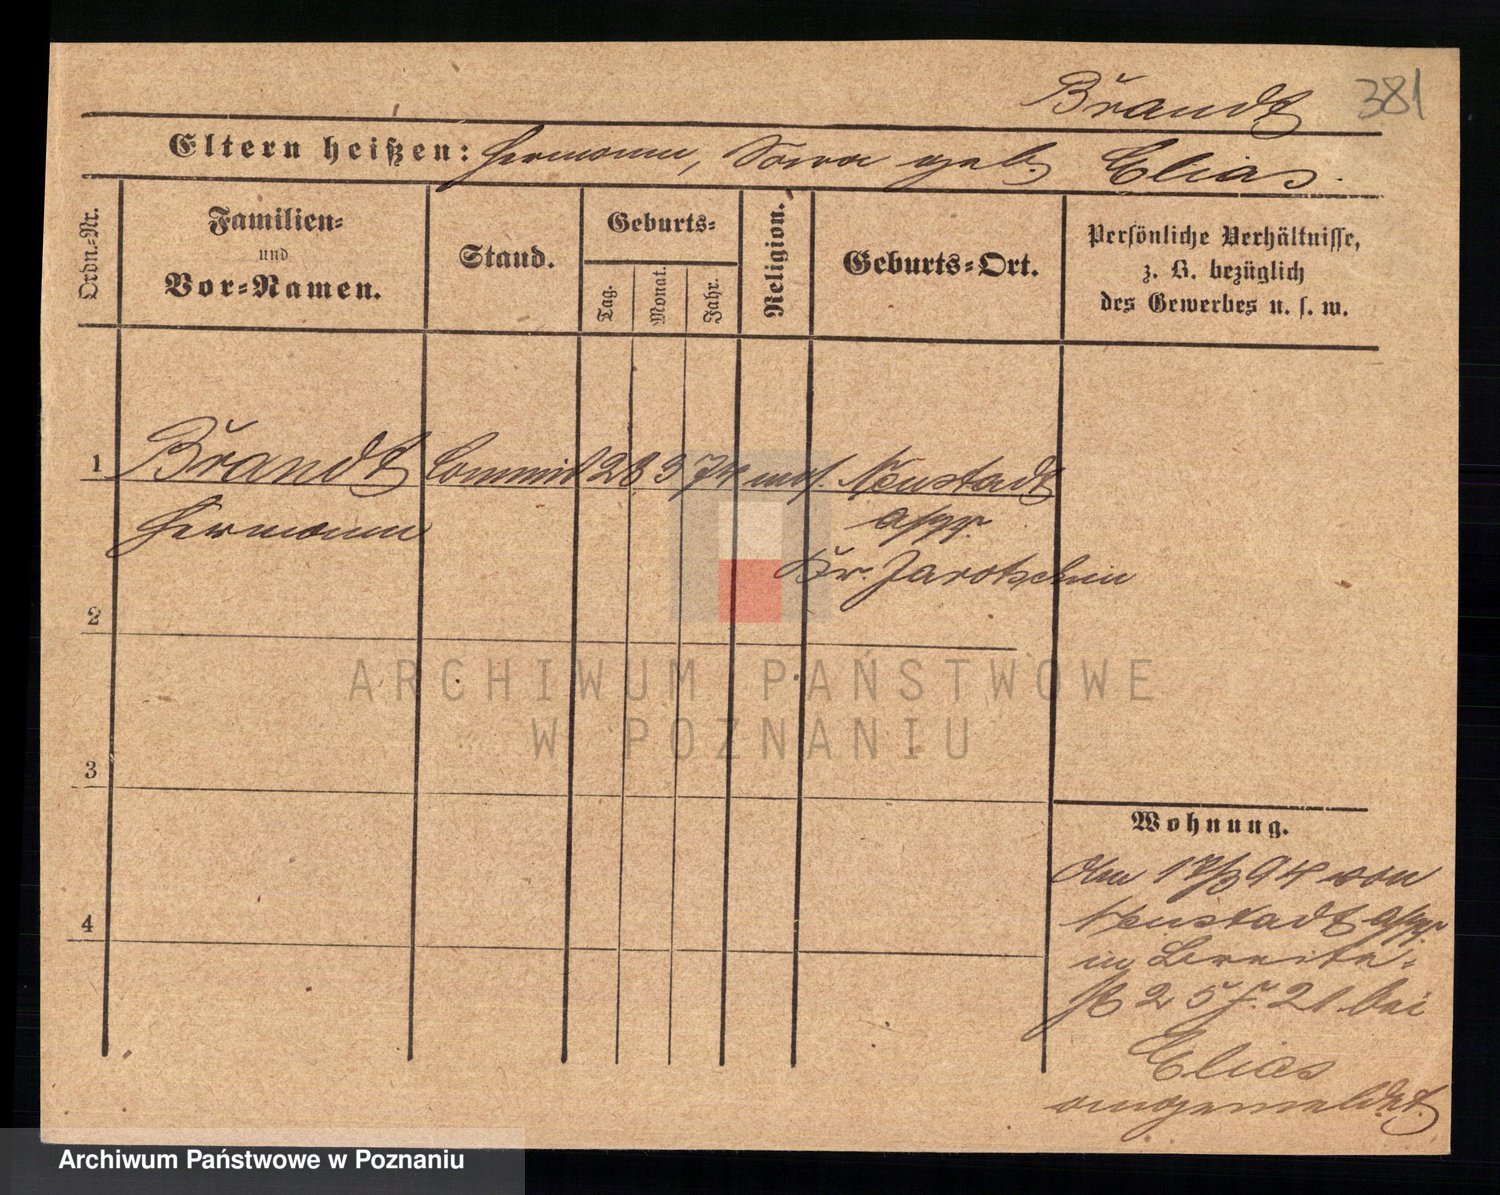 Brandt 381
Eltern heißen: Hermann, Sara geb. Elias.
Ordn.-Nr.
Familien-
und
Vor-Namen.
Stand.
Geburts-
Tag.
Monat.
Jahr.
Religion.
Geburts-Ort.
Persönliche Verhältnisse,
z. B. bezüglich
des Gewerbes u. s. w.
1 Brandt Commis 28 3 74 mos. Neustadt
Hermann
Kr. Jarotschin
2
3
4
Wohnung.
Am 17/3 94 von
Neustadt
in Breite-
bei
Elias
angemeldet.
ARCHIWUM PAŃSTWOWE
W POZNANIU
Archiwum Państwowe w Poznaniu